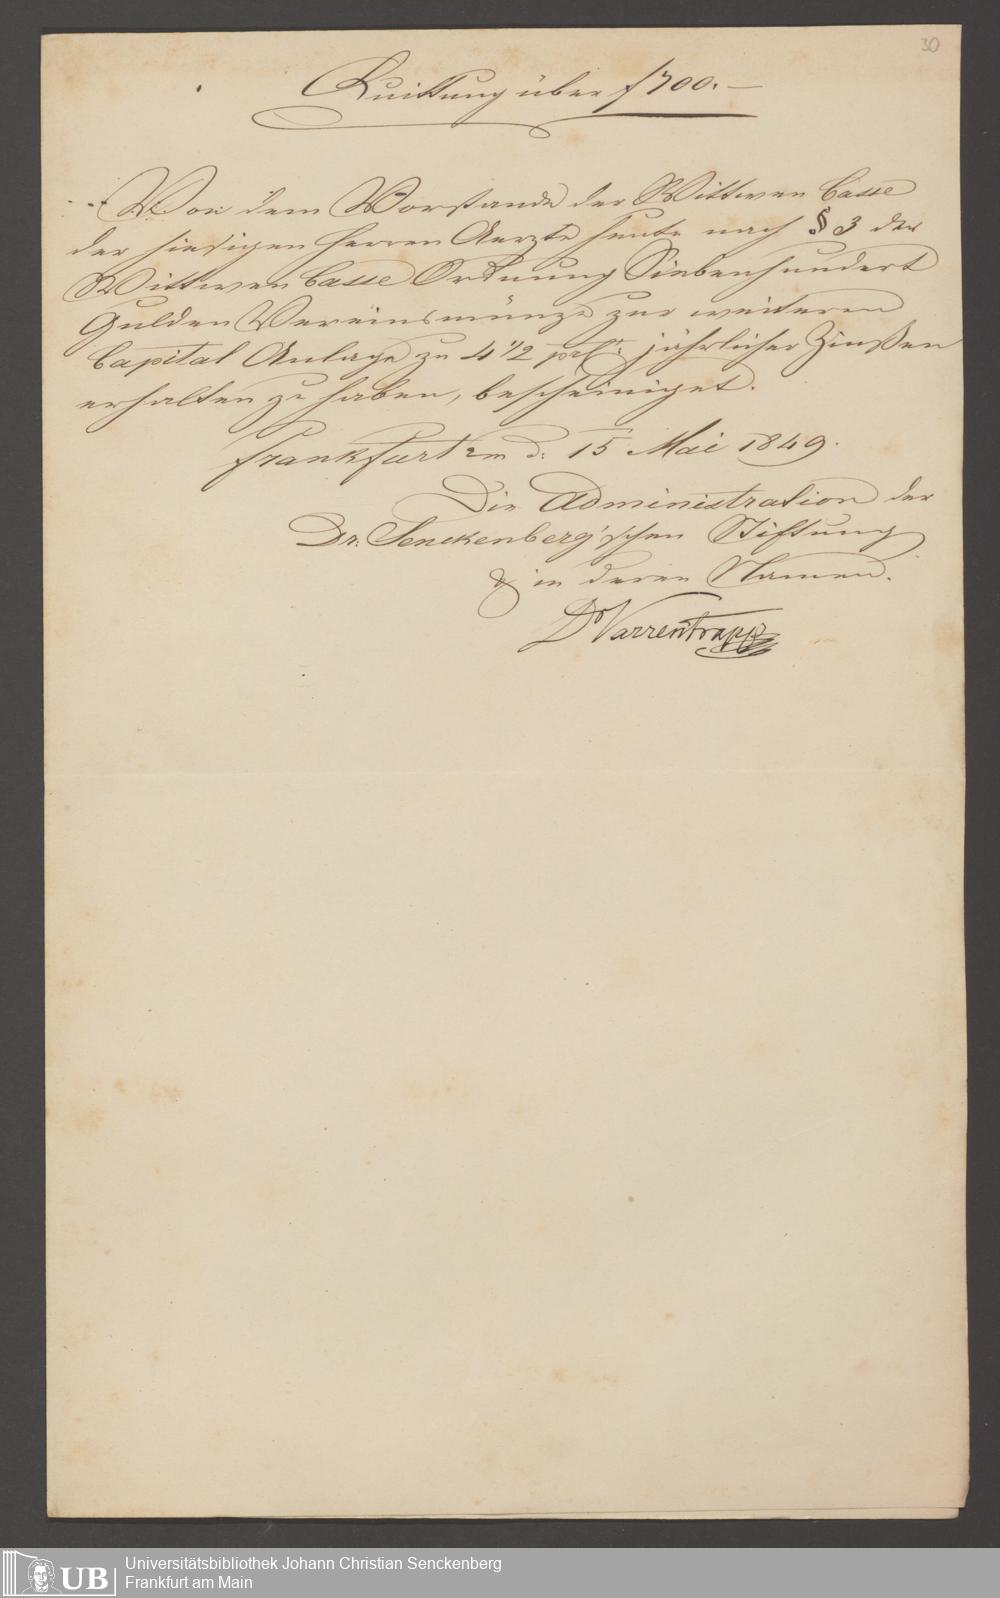 30
Quittung über f 700. —
Von dem Vorstande der Wittwen Casse
der hiesigen Herren Aerzte heute nach § 3 der
Wittwen Casse Ordnung Siebenhundert
Gulden Vereinsmünze zur weiteren
Capital Anlage zu 4 1/2 prCt: jährlicher Zinßen
erhalten zu haben, bescheiniget.
Frankfurt a/m d: 15 Mai 1849.
Die Administration der
Dr: Senckenberg'schen Stiftung
& in deren Namen.
Dr Varrentrapp
Universitätsbibliothek Johann Christian Senckenberg
Frankfurt am Main
UB